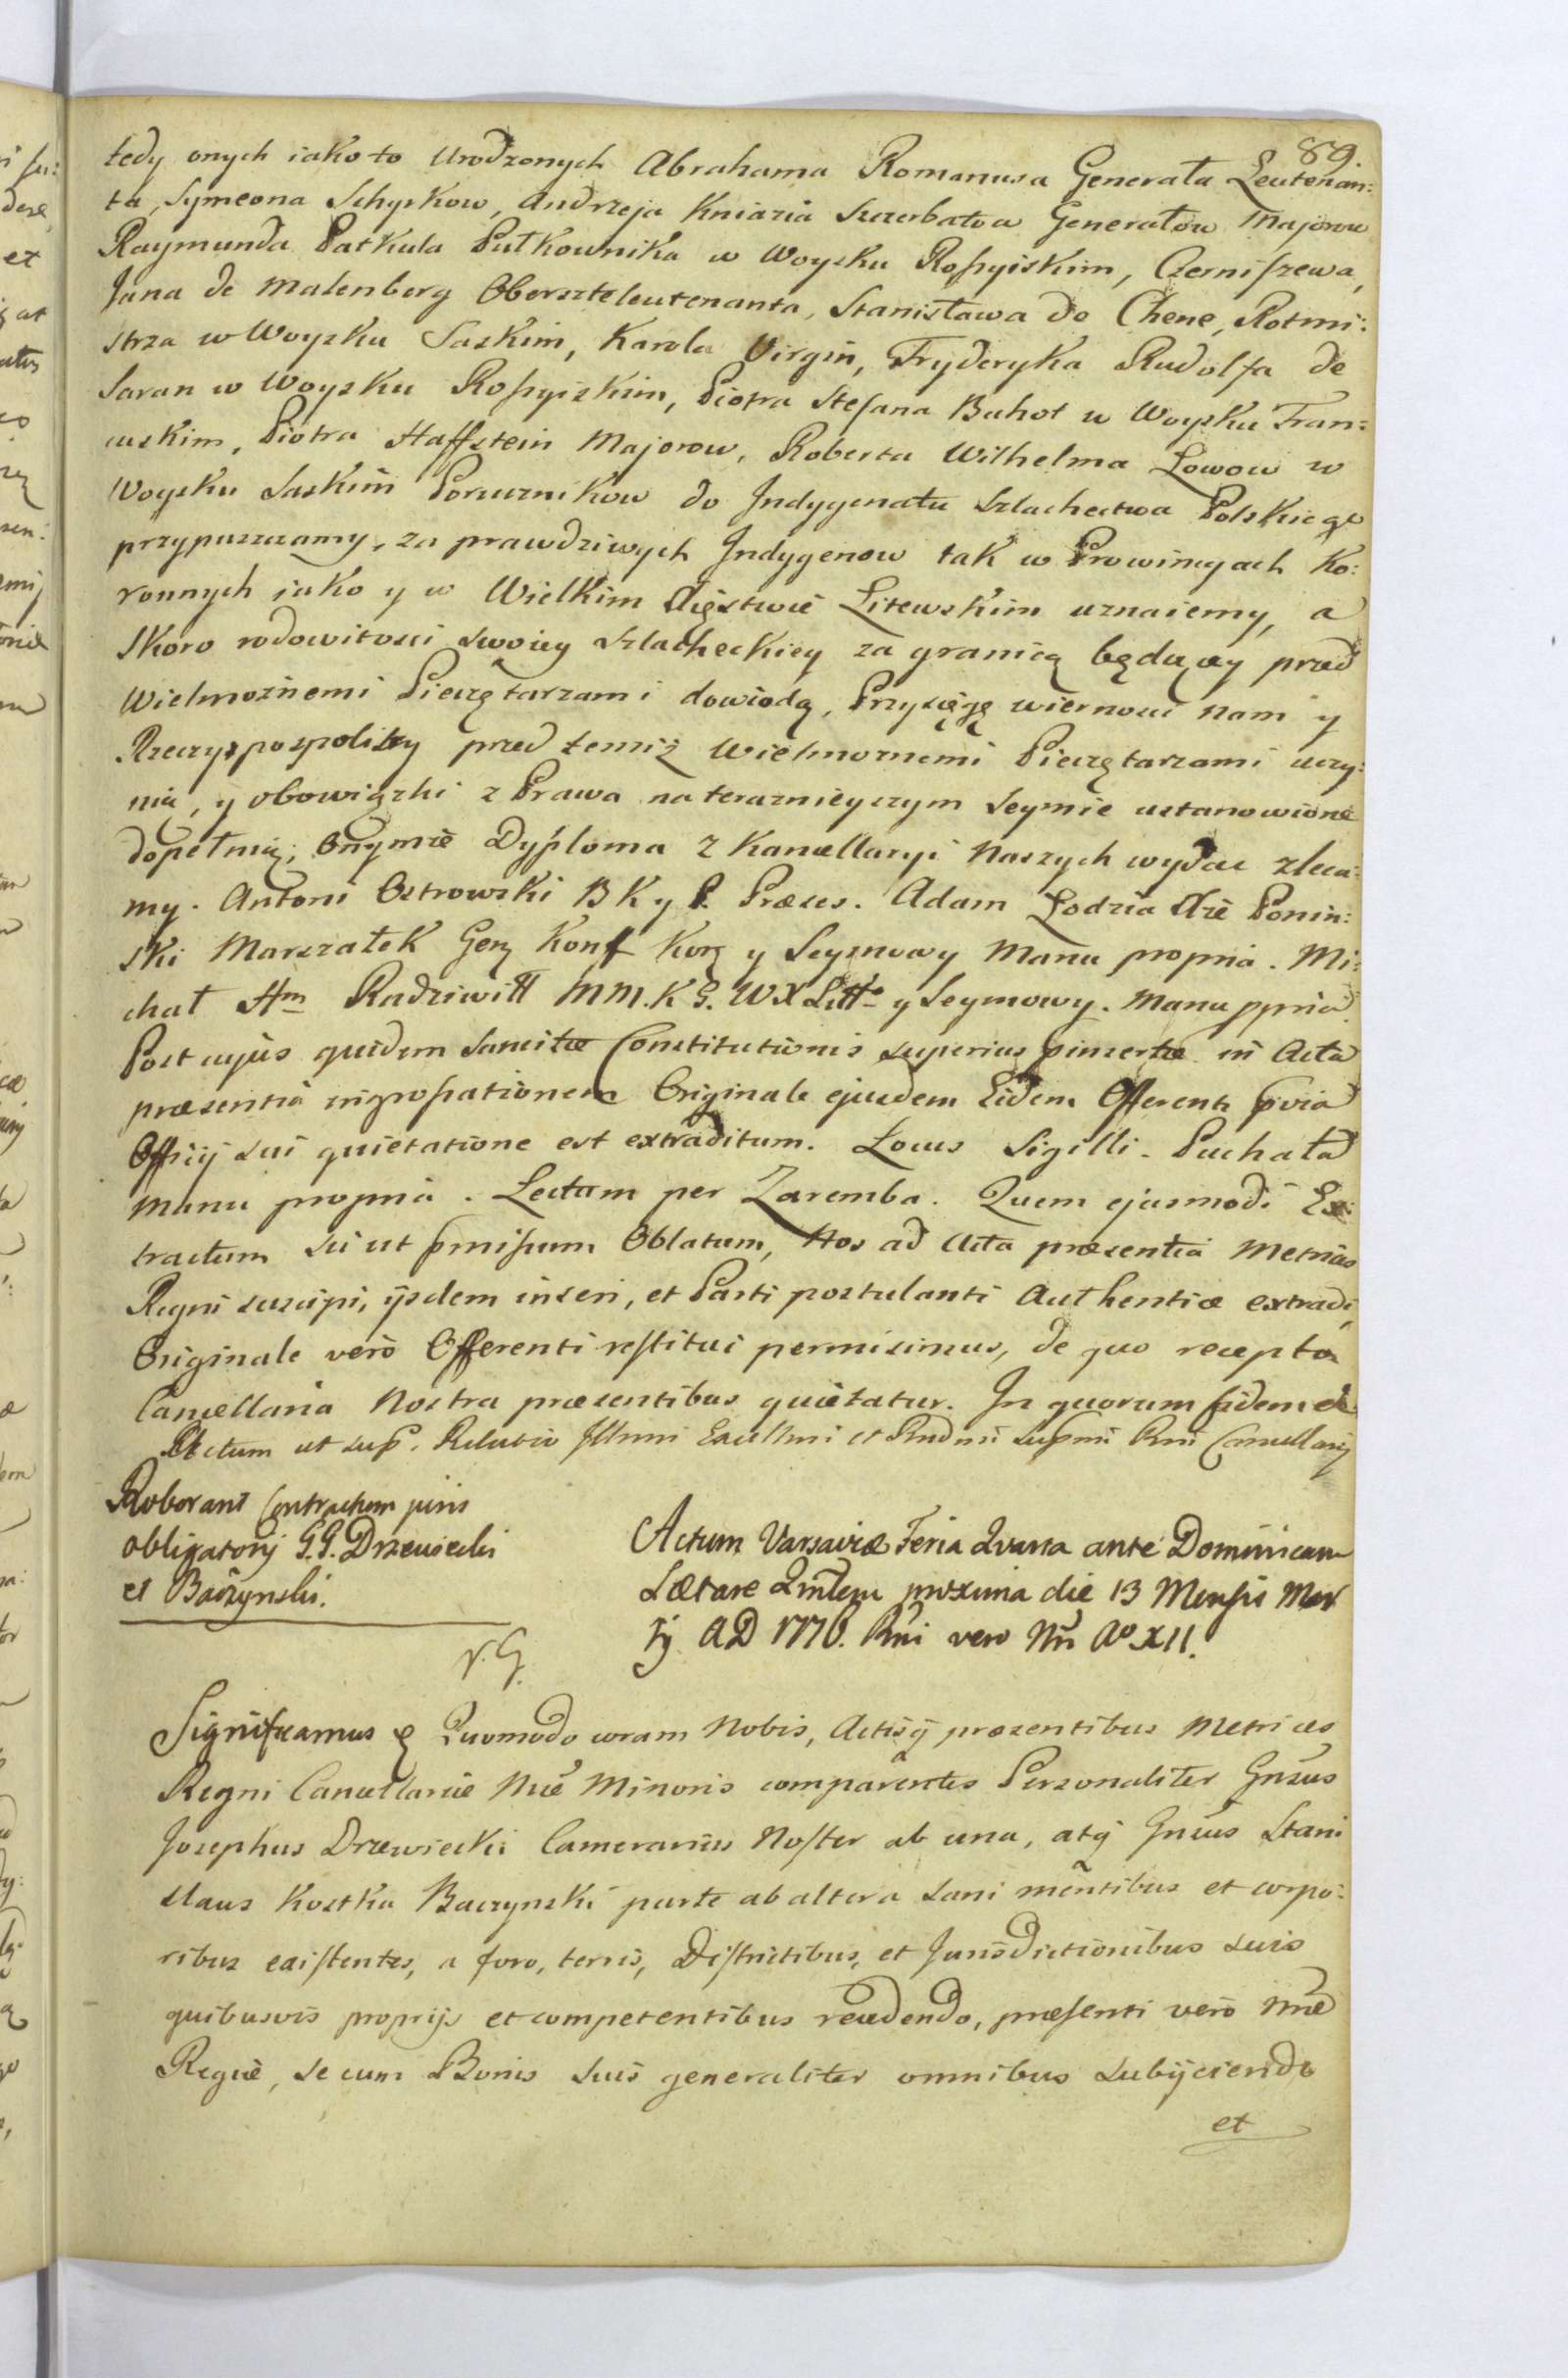 89.
tedy onych iako to Urodzonych Abrahama Romanusa Generała Leutenan:
ta, Symeona Schyrkow, Andrzeja Kniazia Szczerbatoa Generałow Majorow
Raymunda Patkula Pułkownika w Woysku Rossyiskim, Czerniszewa,
Jana de Malenberg Oberszteleutenanta, Stanisława de Chene, Rotmi:
strza w Woysku Saskim, Karola Virgin, Fryderyka Rudolfa de
Saran w Woysku Rossyiskim, Piotra Stefana Buhot w Woysku Fran:
cuskim, Piotra Haffstein Majorow, Roberta Wilhelma Lowow w
Woysku Saskim Porucznikow do Indygenatu Szlachectwa Polskiego
przypuszczamy, za prawdziwych Indygenow tak w Prowincyach Ko:
ronnych iako y w Wielkim Xięstwie Litewskim uznaiemy, a
skoro rodowitosci swoiey Szlacheckiey za granicą będącey przed
Wielmożnemi Pieczętarzami dowiodą, Przysięgę wiernosci nam y
Rzeczyspospolitey przed temiż Wielmożnemi Pieczętarzami uczy:
nią, y obowiązki z Prawa na teraznieyszym Seymie ustanowione
dopełnią; Onymże Dyploma z Kancellaryi Naszych wydac zleca:
my. Antoni Ostrowski B K y P. Præses. Adam Lodzia Xże Ponin:
ski Marszałek Gen Konf Kor y Seymowy Manu propria. Mi:
chał Hm Radziwiłł M M. K G. W X Litto y Seymowy. Manu ppria
Post cujus quidem Sancitæ Constitutionis superius pinsertæ in Acta
præsentia ingrossationem Originale ejusdem Eidem Offerenti pvia
Officij sui quietatione est extraditum. Locus Sigilli. Puchała
manu propria. Lectum per Zaremba. Quem ejusmodi Ex:
tractum sic ut pmissum Oblatum, Nos ad Acta præsentia Metrices
Regni suscipi, ijsdem inseri, et Parti postulanti Authentice extradi,
Originale verò Offerenti restitui permisimus, de quo recepto
Cancellaria Nostra præsentibus quietatur. In quorum fidem et
Actum ut sup. Relatio Illmi Excellmi et Rndmi Supmi Rni Cancellarij
Roborant Contractum juris
obligatorij G.G. Drzewiecki
et Baczynski.
Actum Varsaviæ Feria Qvarta ante Dominicam
Lætare Qvadlem proxima die 13 Mensis Mar
tij AD 1776. Rni vero Nri Ao XII.
Significamus Quomodo coram Nobis, Actisq præsentibus Metrices
Regni Cancellariæ Nræ Minoris comparentes Personaliter Gnsus
Josephus Drzewiecki Camerarius Noster ab una, atq Gnsus Stani
slaus Kostka Baczynski parte ab altera sani mentibus et corpo:
ribus existentes, a foro, terris, Districtibus, et Jurisdictionibus suis
quibusvis proprijs et competentibus recedendo, præsenti verò Nræ
Regiæ, se cum Bonis suis generaliter omnibus subijciendo
et